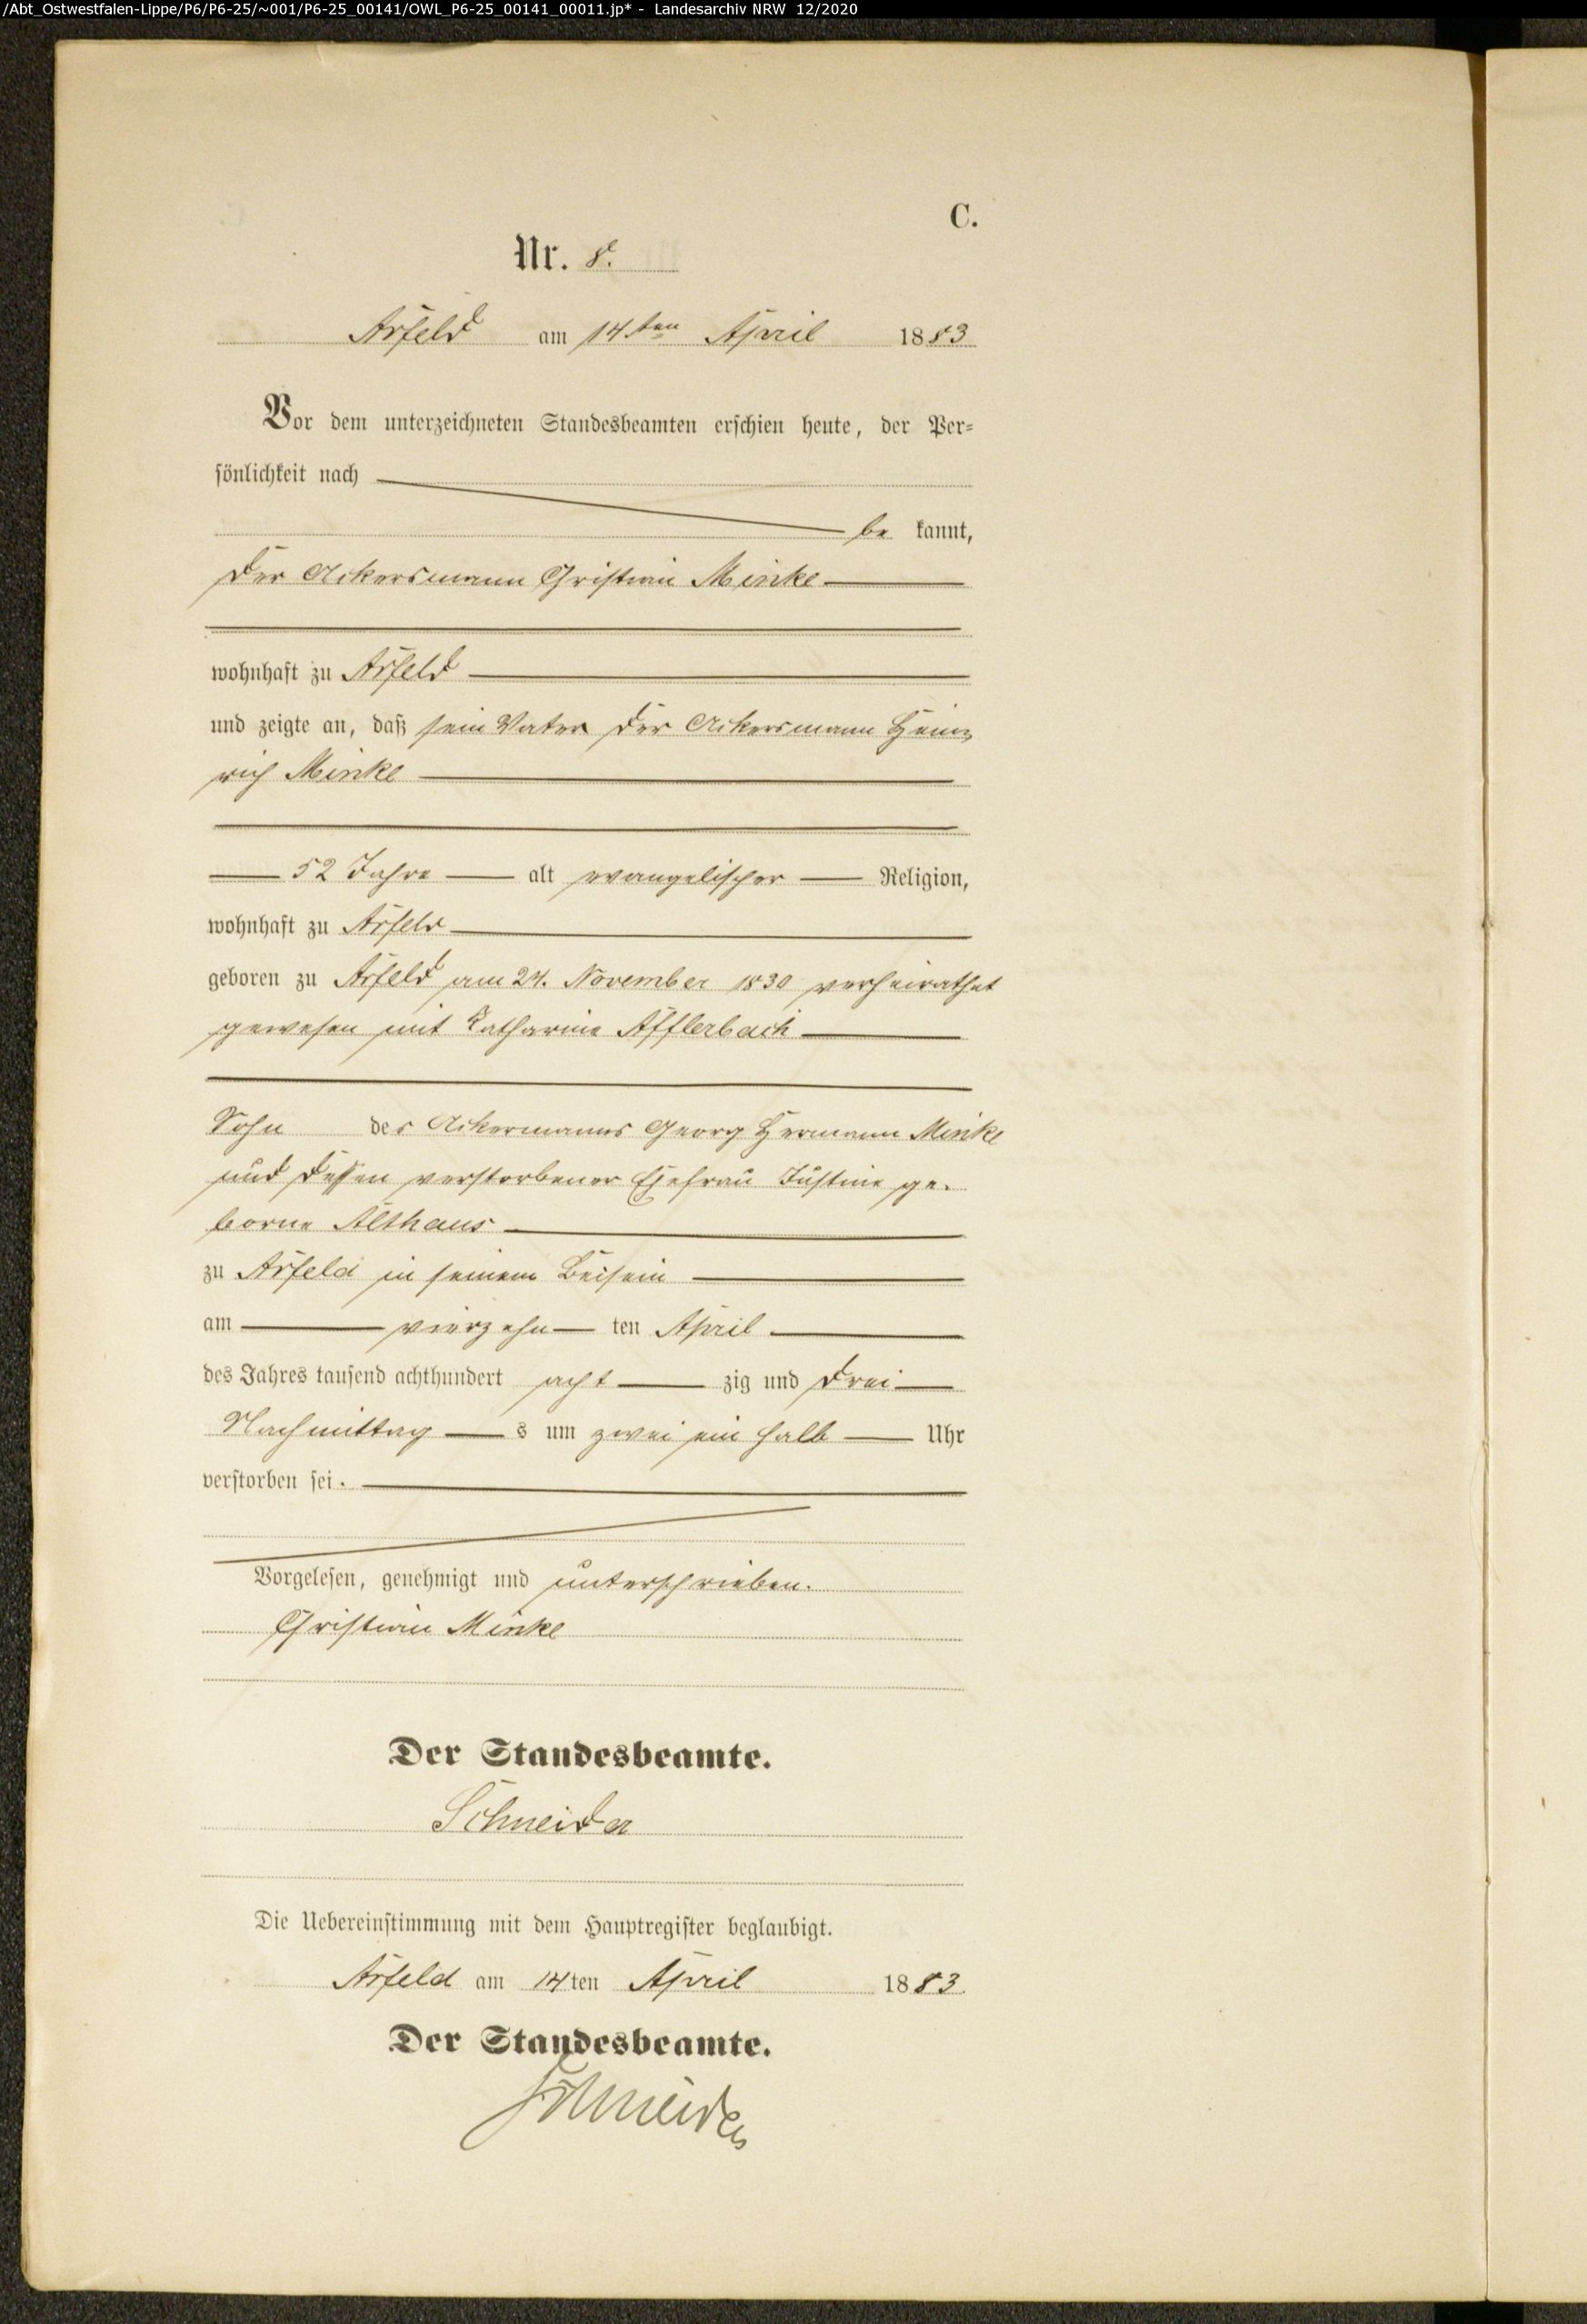 /Abt_Ostwestfalen-Lippe/P6/P6-25/~001/P6-25_00141/OWL_P6-25_00141_00011.jp* - Landesarchiv NRW 12/2020
C.
Nr. 8.
Arfeld am 14ten April 1883
Vor dem unterzeichneten Standesbeamten erschien heute, der Per-
sönlichkeit nach
be kannt,
der Ackersmann Christian Minke
wohnhaft zu Arfeld
und zeigte an, daß sein Vater der Ackersmann Hein-
rich Minke
52 Jahre alt evangelischer Religion,
wohnhaft zu Arfeld
geboren zu Arfeld am 24. November 1830 verheirathet
gewesen mit Katharine Afflerbach
Sohn des Ackermanns Georg Hermann Minke
und dessen verstorbener Ehefrau Justine ge-
borne Althaus
zu Arfeld in seinem Beisein
am vierzehn ten April
des Jahres tausend achthundert acht zig und drei
Nachmittag s um zwei ein halb Uhr
verstorben sei.
Vorgelesen, genehmigt und unterschrieben.
Christian Minke
Der Standesbeamte.
Schneider
Die Uebereinstimmung mit dem Hauptregister beglaubigt.
Arfeld am 14ten April 1883.
Der Standesbeamte.
Schneider